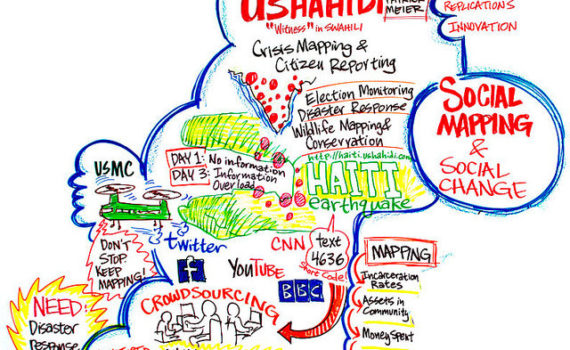 USHAHIDI
PATRICK
MEIER
"Witness" in SWAHILI
REPLICATIONS
INNOVATION
Crisis Mapping &
Citizen Reporting
Election Monitoring
Disaster Response
Wildlife Mapping &
Conservation
SOCIAL
MAPPING
&
SOCIAL
CHANGE
USMC
DAY 1: No information
DAY 3: Information
Overload
http://haiti.ushahidi.com
HAITI
earthquake
DON'T
STOP
KEEP
MAPPING!
twitter
f
YOUTUBE
CNN
BBC
text
4636
Short Code!
MAPPING
Incarceration
Rates
Assets in
Community
Money Spent
CROWDSOURCING
NEED:
Disaster
Response